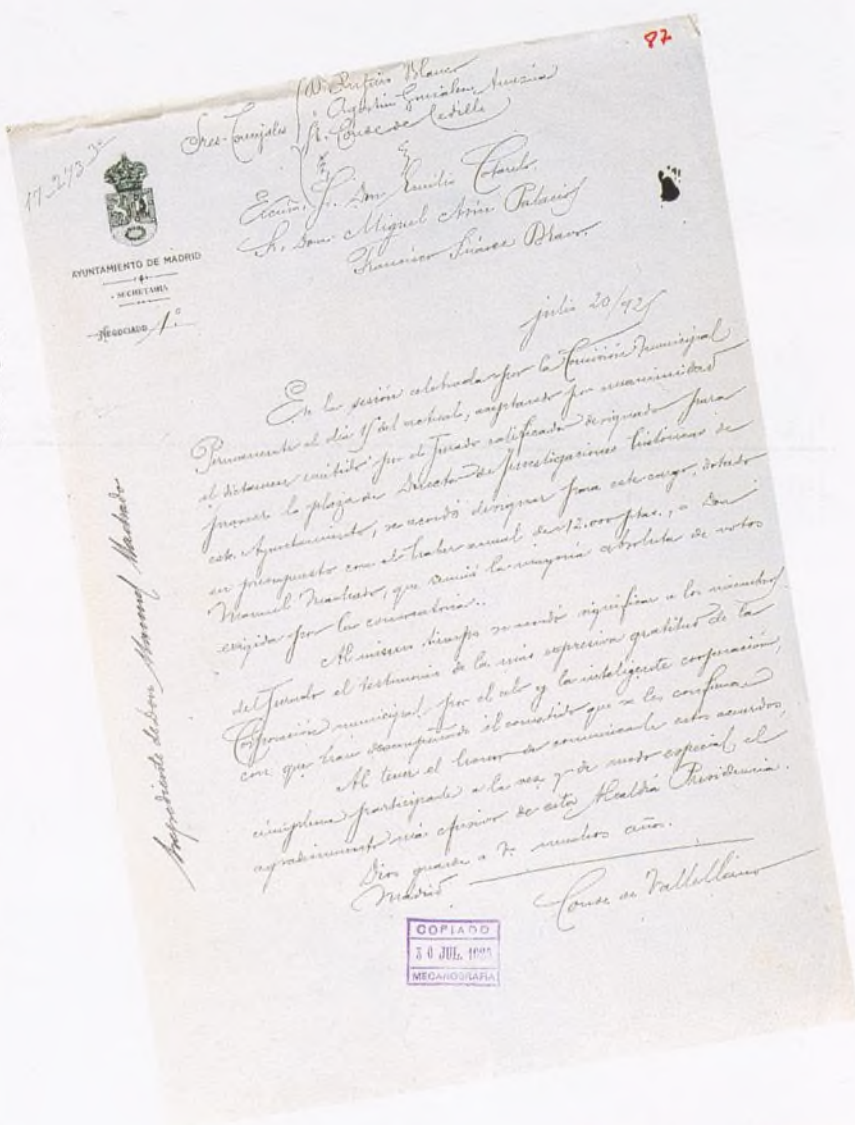 87
17-273-3º
Sres. Concejales
D. Rufino Blanco
" Agustín González Amezúa
Sr. Conde de Cedillo
Excmo. Sr. Don Emilio Cotarelo.
Sr. Don Miguel Asín Palacios
Francisco Suárez Bravo.
AYUNTAMIENTO DE MADRID
SECRETARÍA
NEGOCIADO 1.º
julio 20/925
En la sesión celebrada por la Comisión Municipal
Permanente el día 15 del actual, aceptando por unanimidad
el dictamen emitido por el Jurado calificador designado para
proveer la plaza de Director de Investigaciones históricas de
este Ayuntamiento, se acordó designar para este cargo, dotado
en presupuesto con el haber anual de 12.000 ptas., a Don
Manuel Machado, que reunió la mayoría absoluta de votos
exigida por la convocatoria.
Al mismo tiempo se acordó significar a los miembros
del Jurado el testimonio de la más expresiva gratitud de la
Corporación municipal por el celo y la inteligente cooperación,
con que han desempeñado el cometido que se les confiara.
Al tener el honor de comunicarle estos acuerdos,
cúmpleme participarle a la vez y de modo especial, el
agradecimiento más efusivo de esta Alcaldía Presidencia.
Dios guarde a V. muchos años.
Madrid
Conde de Vallellano
Expediente de Don Manuel Machado
COPIADO
30 JUL. 1925
MECANOGRAFIA